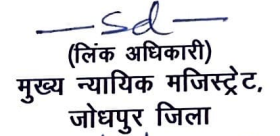 —Sd—
(लिंक अधिकारी)
मुख्य न्यायिक मजिस्ट्रेट,
जोधपुर जिला